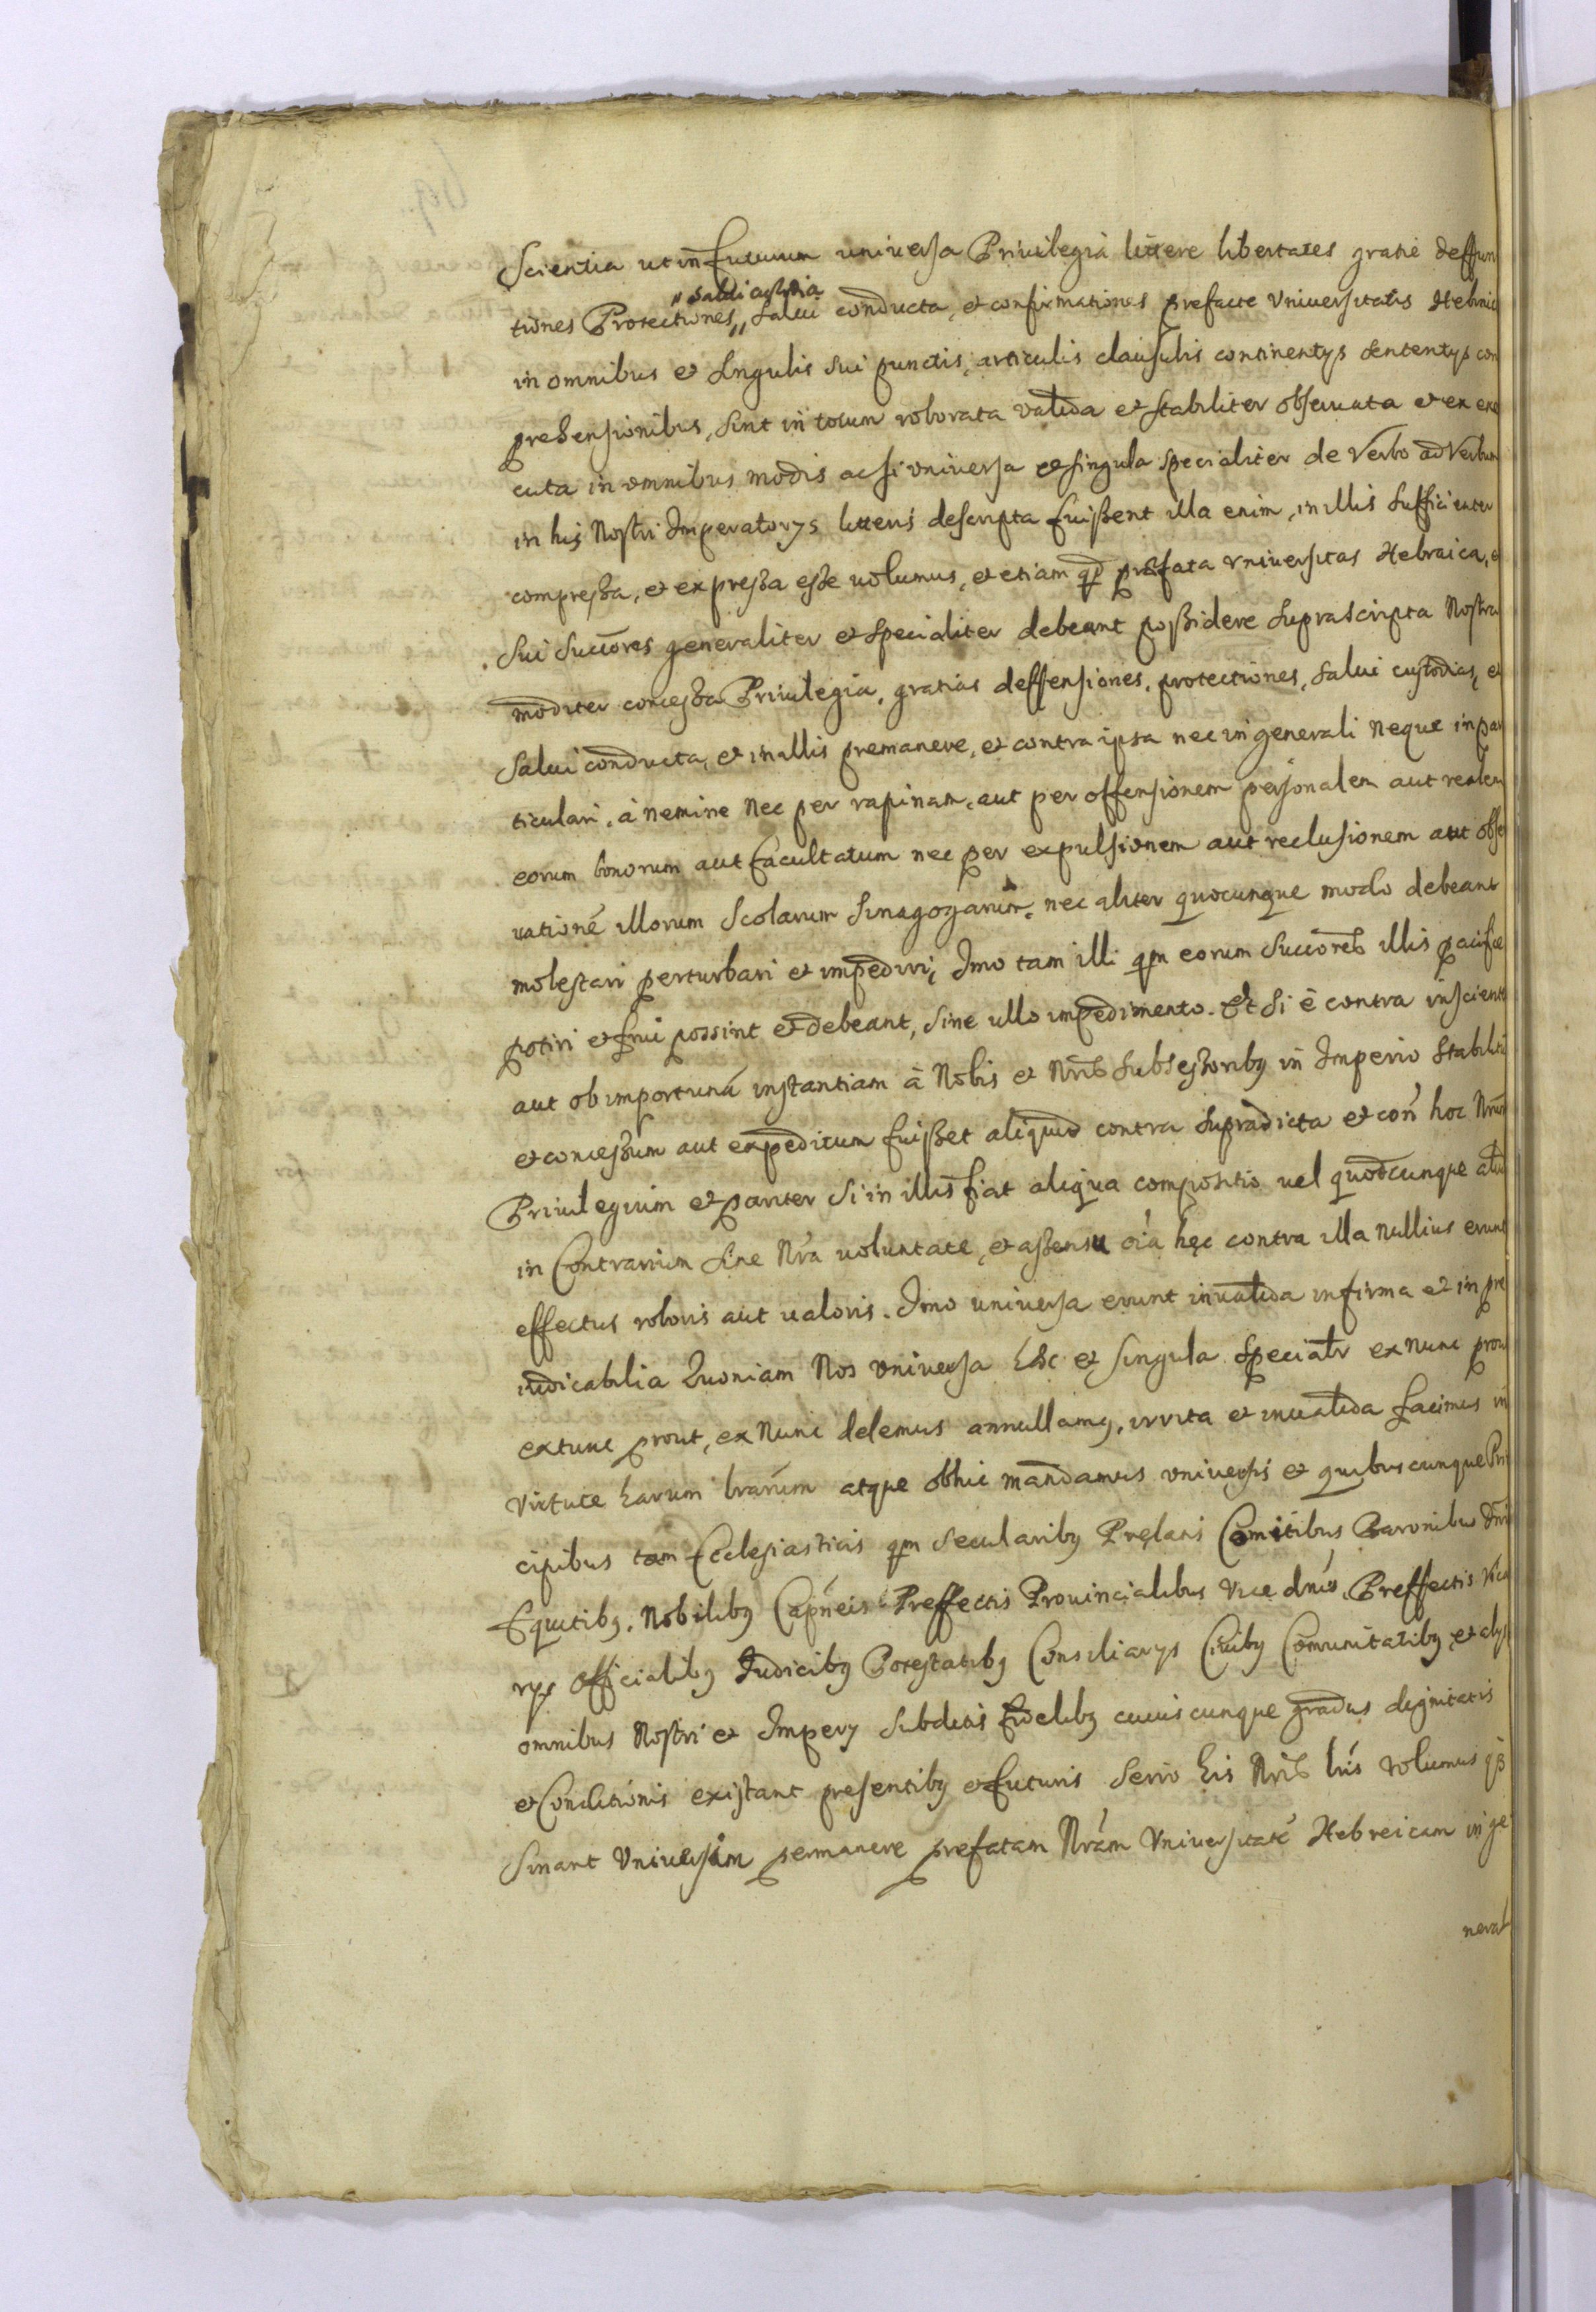 Scientia ut in futurum universa Priuilegia littere libertates gratie deffen
„ salui custodia
tiones Protectiones „ salui conducta, et confirmationes prefacte Vniuersitatis Hebraic
in omnibus et singulis sui punctis, articulis clausulis continentys sententys con
prehensionibus, sint in totum roborata valida et stabiliter obseruata et ex exe
cuta in omnibus modis ac si vniuersa et singula specialiter de Verbo ad Verbum
in his Nostri Imperatorys litteris descripta fuissent illa enim, in illis sufficienter
compressa, et expressa esse uolumus, et etiam qd prefata vniuersitas Hebraica, e
sui succores generaliter et specialiter debeant possidere suprascripta Nostra
moditer concessa Priuilegia, gratias deffensiones, protectiones, salui custodias, et
salui conducta, et in illis premanere, et contra ipsa nec in generali neque in par
ticulari, à nemine nec per rapinam, aut per offensionem personalem aut realem
eorum bonorum aut facultatum nec per expulsionem aut reclusionem aut obse
uationé illorum Scolarum Sinagogarum, nec aliter quocunque modo debeant
molestari perturbari et impediri, Imo tam illi qm eorum succores illis pacifice
potiri et frui possint et debeant, sine ullo impedimento. Et si è contra inscient
aut ob importuná instantiam à Nobis et Nris subsessoribg in Imperio stabilit
et concessum aut expeditum fuisset aliquid contra supradicta et con hoc Nrum
Priuilegium et pariter si in illis fiat aliqua compositio uel quodcunque aliud
in Contrarium sine Nrá uoluntate, et assensu oia hęc contra illa nullius erunt
effectus roboris aut ualoris. Imo uniuersa erunt inualida infirma et in pre
iudicabilia Quoniam Nos vniuersa hęc et singula specialr ex nunc prou
extunc prout, ex nunc delemus annullamg, irrita et inualida facimus in
virtute harum lrárum atque obhic mandamus vniuersis et quibuscunque Prin
cipibus tam Ecclesiasticis qm secularibg Pręlatis Comitibus Baronibus dni
Equitibg, Nobilibg Capneis Preffectis Prouincialibus Vice dnis, Preffectis Vica
rys officialibg Iudicibg Potestatibg Consiliarys Ciuibg Comunitatibg, et alys
omnibus Nostri et Impery subditis fidelibg cuiuscunque gradus dignitatis
et Conditionis existant presentibg et futuris serio his Nris lris volumus qd
sinant Vniuersim permanere prefatam Nrám Vniuersitaté Hebreicam in ge
neral